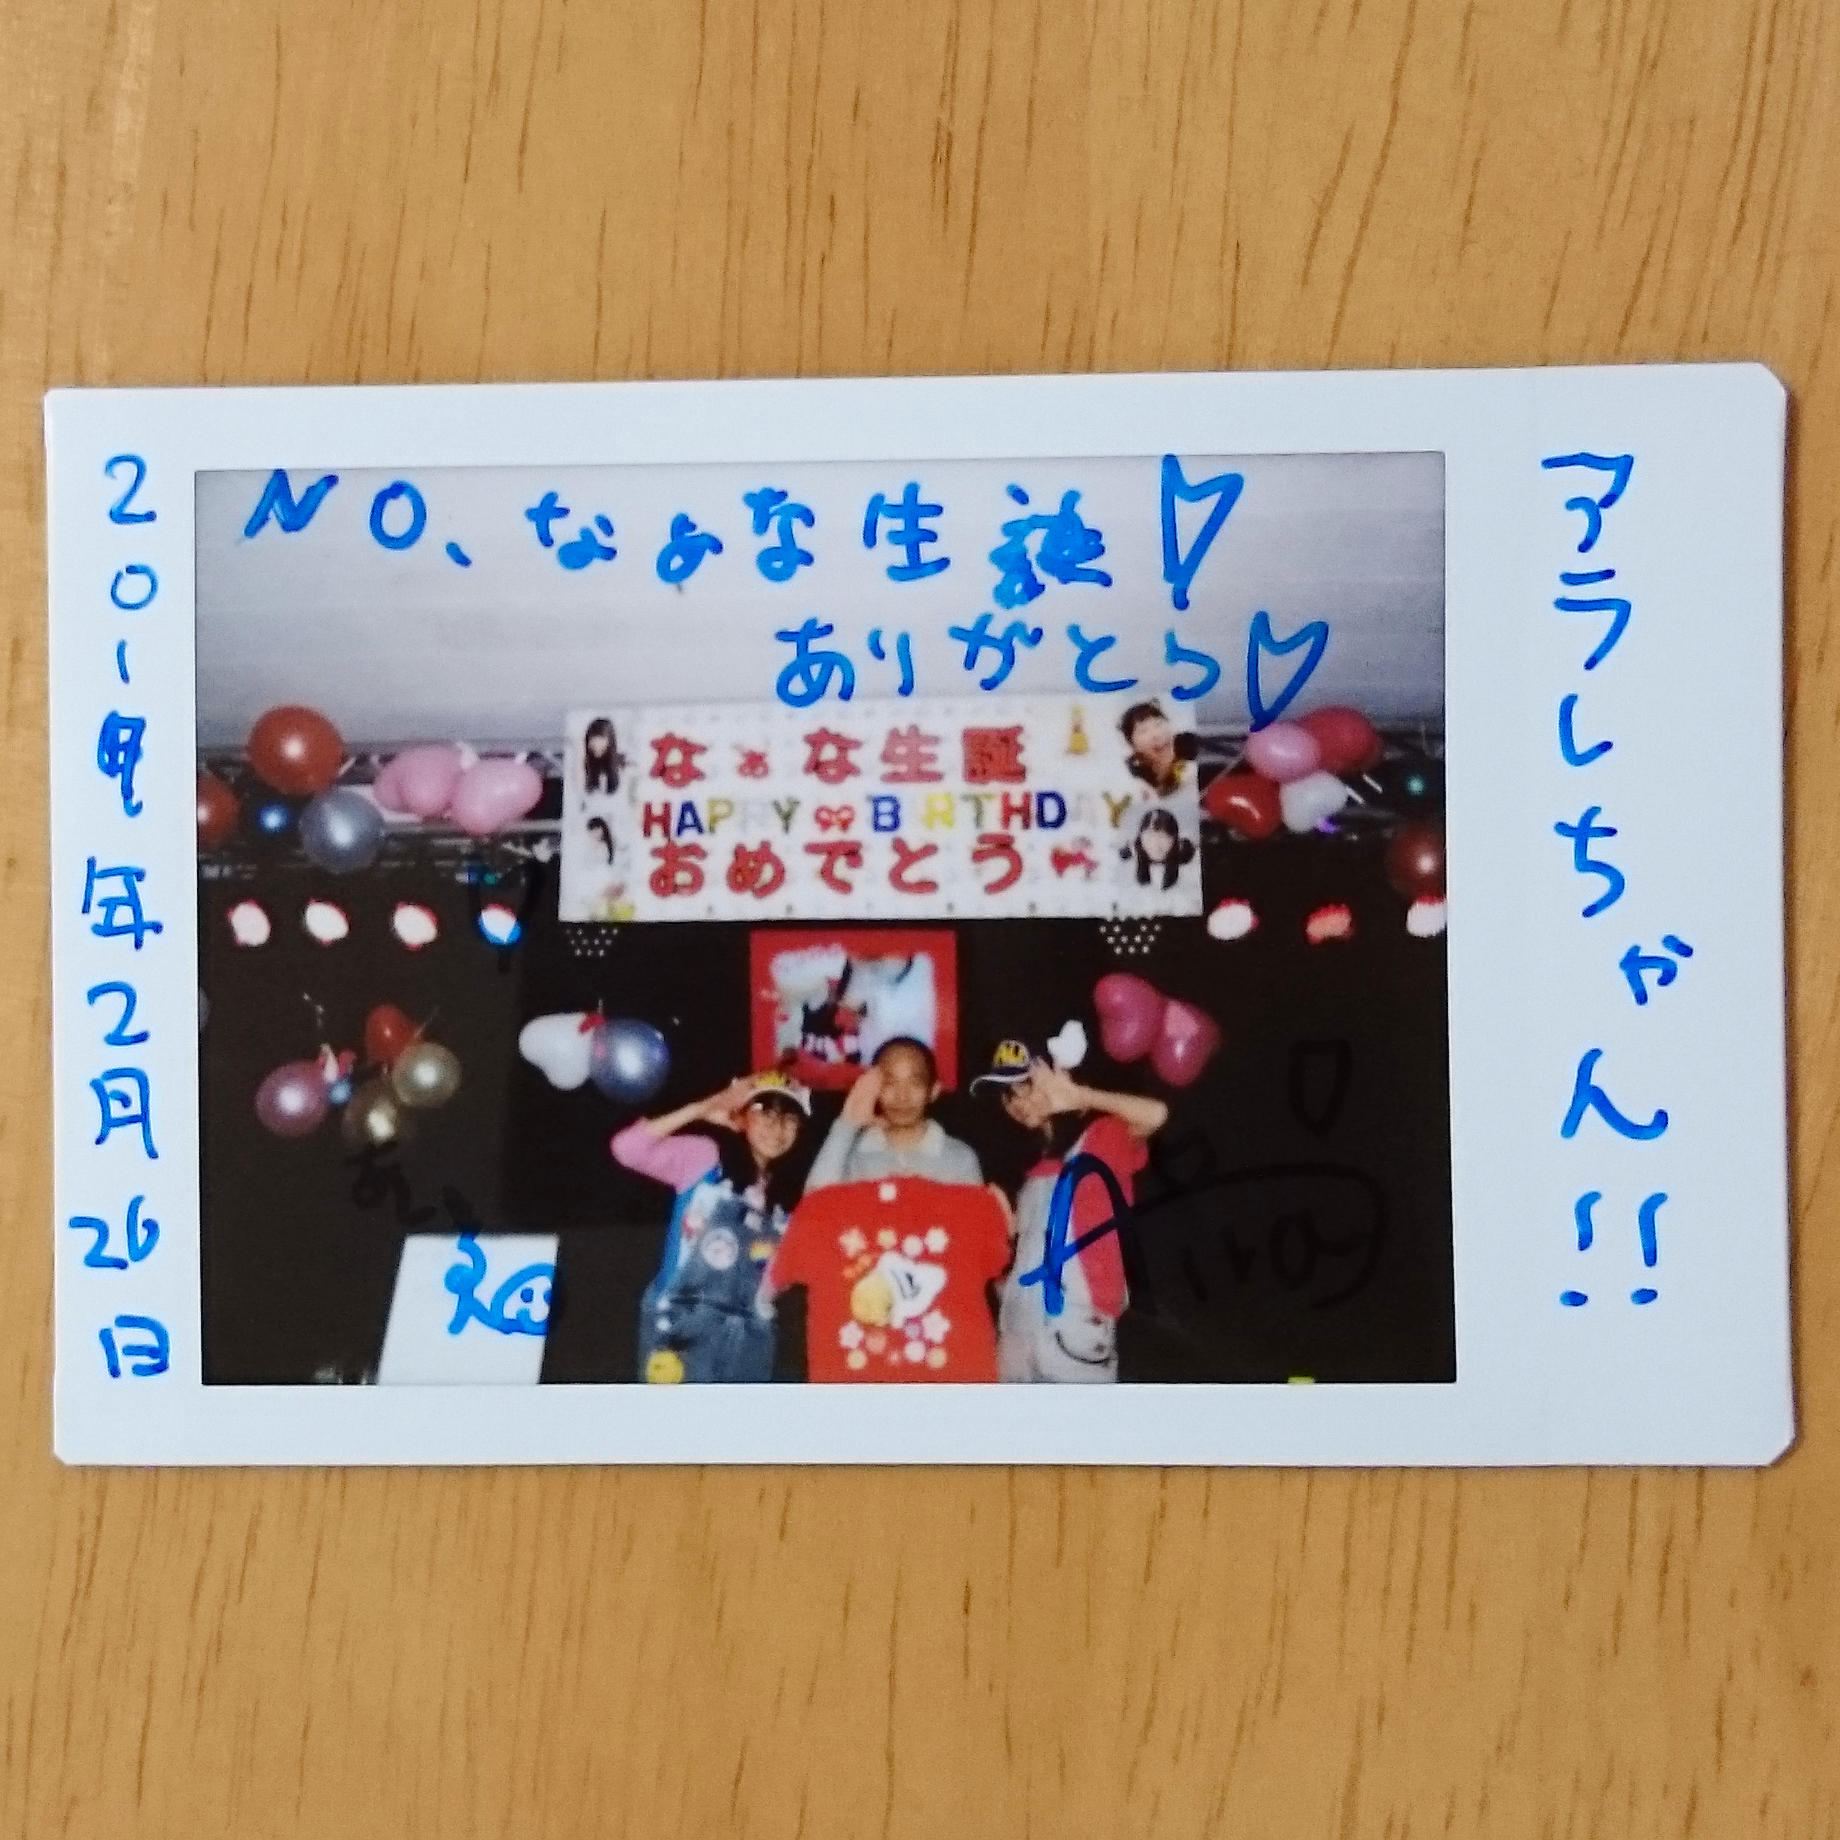 NO、なぁな生誕♡
ありがとう♡
なぁな生誕
HAPPY BIRTHDAY
おめでとう
アラレちゃん!!
2019年2月26日
Aira